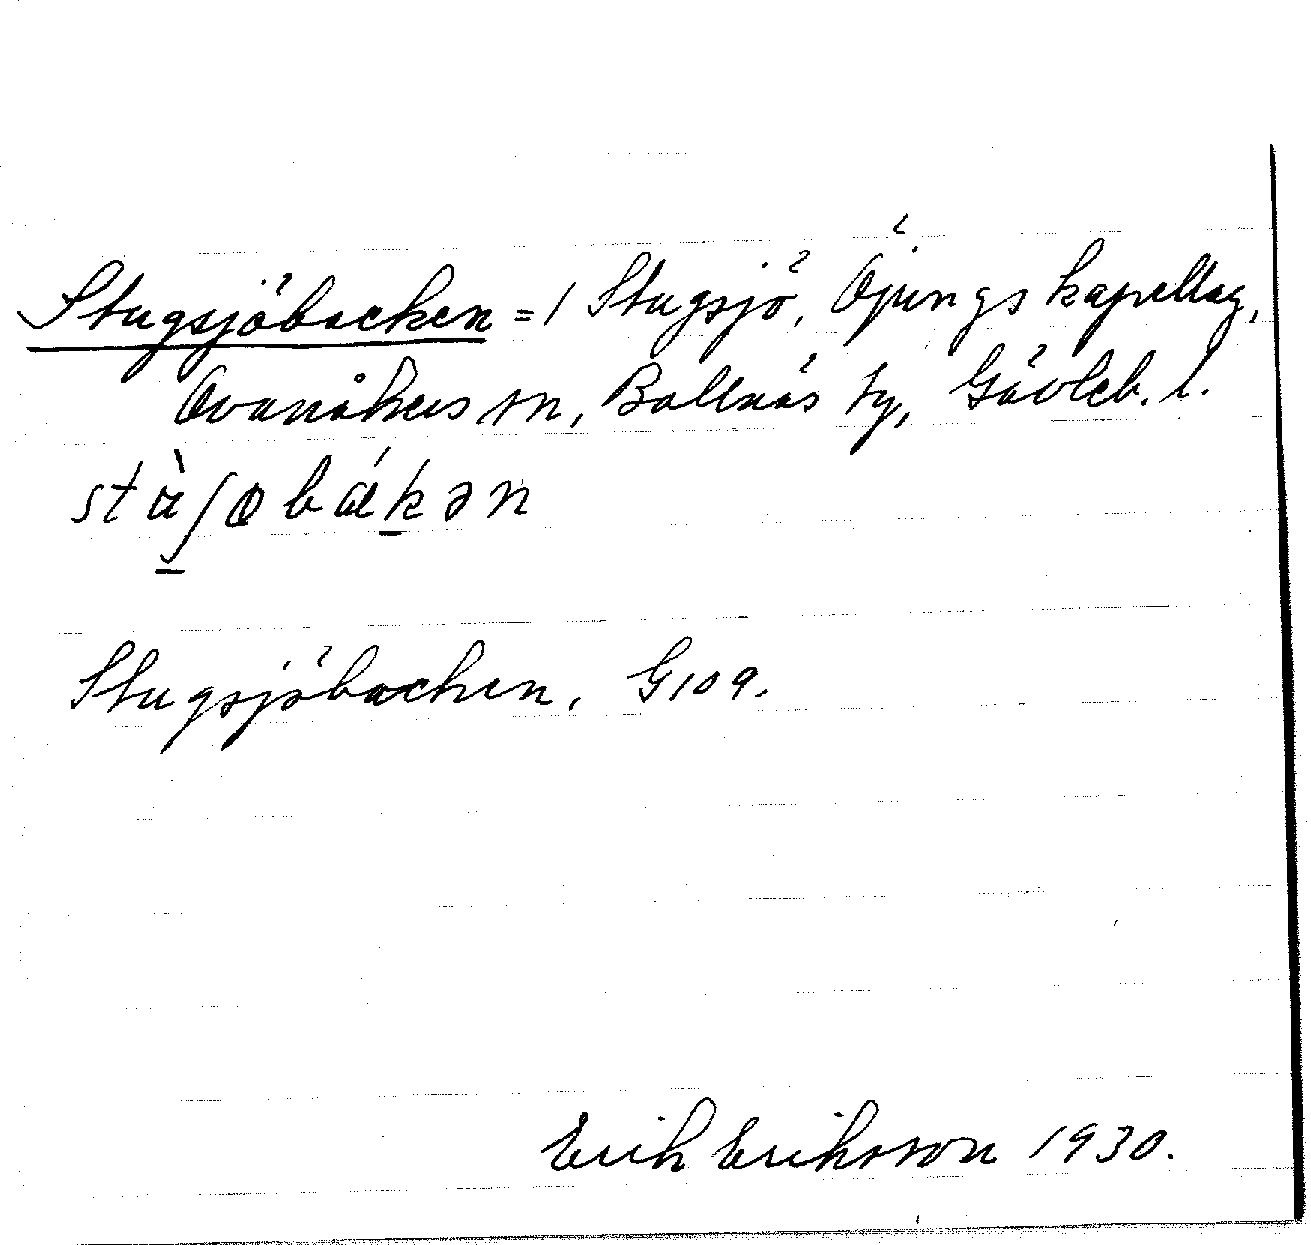 Stugsjöbacken = 1 Stugsjö, Öjungs kapellag,
Ovanåkers sn, Bollnäs tg, Gävleb. l.
Stugsjöbacken, G109.
Erik Eriksson 1930.